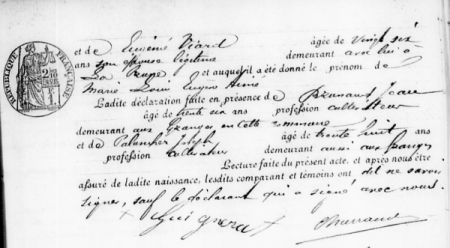 RÉPUBLIQUE FRANÇAISE
et de Eugénie Viard âgée de vingt six
ans son épouse demeurant avec lui à
La et auquel il a été donné le prénom de
Marie Louis Eugène Aimé
Ladite déclaration faite en présence de Jean
âgé de trente six ans profession cultivateur
demeurant aux Granges en cette commune
et de Joseph âgé de trente huit ans
profession cultivateur demeurant aussi aux Granges
Lecture faite du présent acte, et après nous être
assuré de ladite naissance, lesdits comparant et témoins ont dit ne savoir
signer, sauf le déclarant qui a signé avec nous.